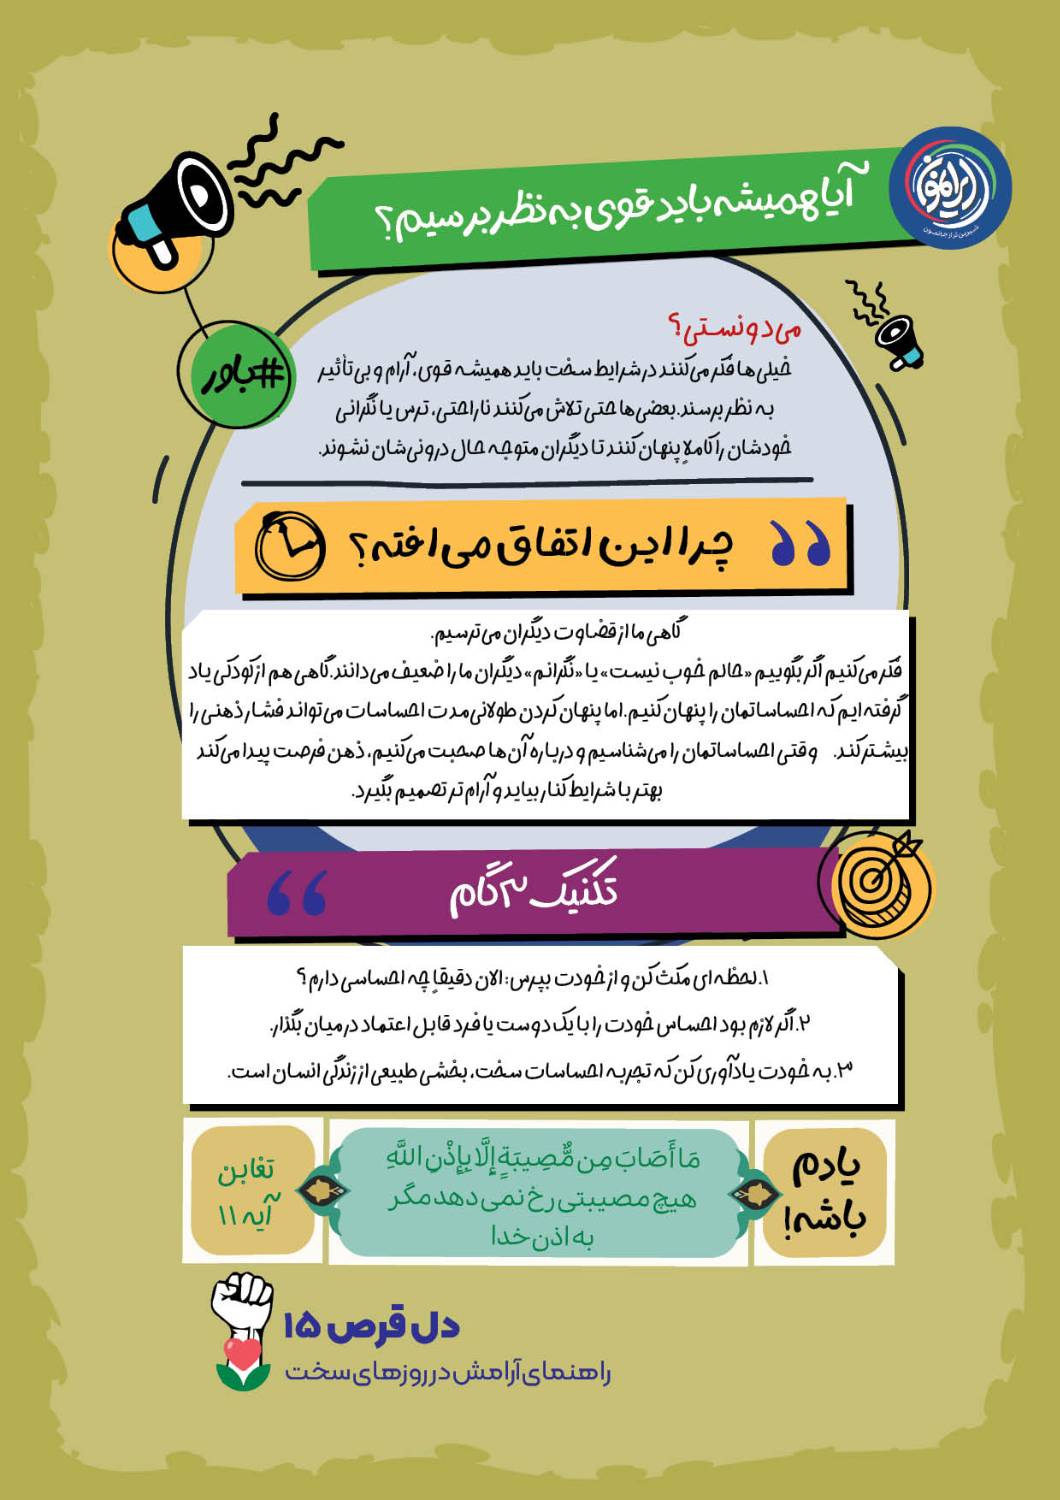 آیا همیشه باید قوی به نظر برسیم؟
#باور
می‌دونستی؟
خیلی‌ها فکر می‌کنند در شرایط سخت باید همیشه قوی، آرام و بی‌تأثیر
به نظر برسند. بعضی‌ها حتی تلاش می‌کنند ناراحتی، ترس یا نگرانی
خودشان را کاملاٍ پنهان کنند تا دیگران متوجه حال درونی‌شان نشوند.
چرا این اتفاق می‌افته؟
گاهی ما از قضاوت دیگران می‌ترسیم.
فکر می‌کنیم اگر بگوییم «حالم خوب نیست» یا «نگرانم» دیگران ما را ضعیف می‌دانند. گاهی هم از کودکی یاد
گرفته‌ایم که احساساتمان را پنهان کنیم. اما پنهان کردن طولانی‌مدت احساسات می‌تواند فشار ذهنی را
بیشتر کند. وقتی احساساتمان را می‌شناسیم و درباره آن‌ها صحبت می‌کنیم، ذهن فرصت پیدا می‌کند
بهتر با شرایط کنار بیاید و آرام‌تر تصمیم بگیرد.
تکنیک ۳ گام
۱. لحظه‌ای مکث کن و از خودت بپرس: الان دقیقاٍ چه احساسی دارم؟
۲. اگر لازم بود احساس خودت را با یک دوست یا فرد قابل اعتماد در میان بگذار.
۳. به خودت یادآوری کن که تجربه احساسات سخت، بخشی طبیعی از زندگی انسان است.
یادم
باشه!
مَا أَصَابَ مِن مُّصِيبَةٍ إِلَّا بِإِذْنِ اللَّهِ
هیچ مصیبتی رخ نمی دهد مگر
به اذن خدا
تغابن
آیه ۱۱
دل قرص ۱۵
راهنمای آرامش در روزهای سخت